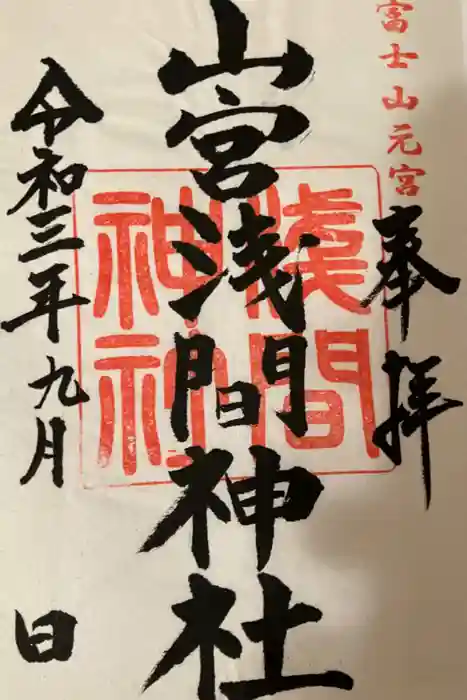 富士山元宮
奉拝
山宮浅間神社
淺間神社
令和三年九月 日